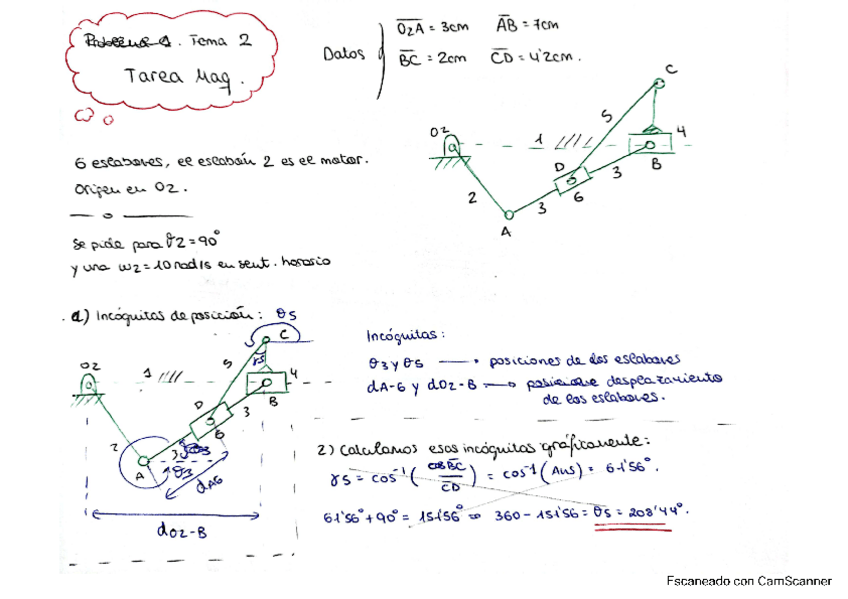 Problema 1. Tema 2
Tarea Maq.
Datos
O2A = 3cm AB = 7cm
BC = 2cm CD = 4'2cm.
C
5
O2
1
4
D
B
3
2
6
3
A
6 eslabones, el eslabón 2 es el motor.
Origen en O2.
Se pide para θ2 = 90°
y una ω2 = 10 rad/s en sent. horario
1) Incógnitas de posición: θ5
C
5
γ5
O2
1
4
D
B
3
6
2
3
A
θ3
dA6
dO2-B
Incógnitas:
θ3 y θ5 → posiciones de los eslabones
dA-6 y dO2-B → desplazamiento
de los eslabones.
2) Calculamos esas incógnitas gráficamente:
γ5 = cos⁻¹ (BC/CD) = cos⁻¹ (Ans) = 61'56°.
61'56° + 90° = 151'56° ⇒ 360 - 151'56 = θ5 = 208'44°.
Escaneado con CamScanner